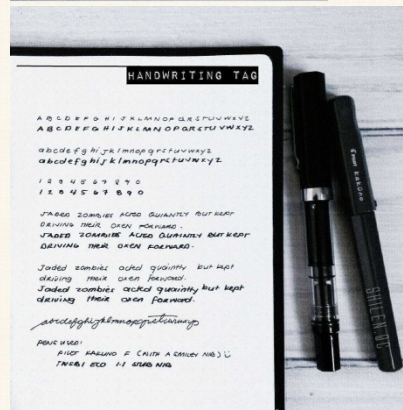 HANDWRITING TAG
A B C D E F G H I J K L M N O P Q R S T U V W X Y Z
A B C D E F G H I J K L M N O P Q R S T U V W X Y Z
a b c d e f g h i j k l m n o p q r s t u v w x y z
a b c d e f g h i j k l m n o p q r s t u v w x y z
1 2 3 4 5 6 7 8 9 0
1 2 3 4 5 6 7 8 9 0
JADED ZOMBIES ACTED QUAINTLY BUT KEPT
DRIVING THEIR OXEN FORWARD.
JADED ZOMBIES ACTED QUAINTLY BUT KEPT
DRIVING THEIR OXEN FORWARD.
Jaded zombies acted quaintly but kept
driving their oxen forward.
Jaded zombies acted quaintly but kept
driving their oxen forward.
abcdefghijklmnopqrstuvwxyz
PENS USED:
PILOT KAKUNO F (WITH A SMILEY NIB)
TWSBI ECO 1.1 STUB NIB
PILOT KAKUNO